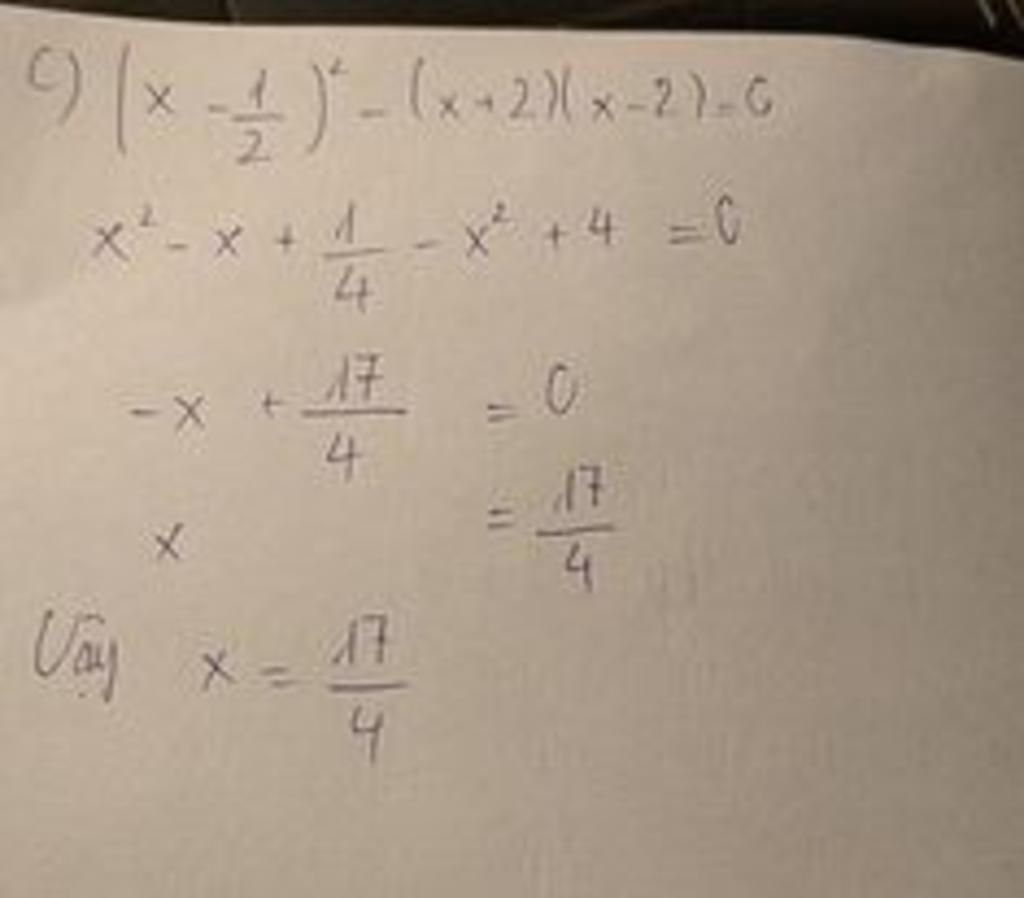 c) (x - 1/2)² - (x + 2)(x - 2) = 0
x² - x + 1/4 - x² + 4 = 0
-x + 17/4 = 0
x = 17/4
Vậy x = 17/4